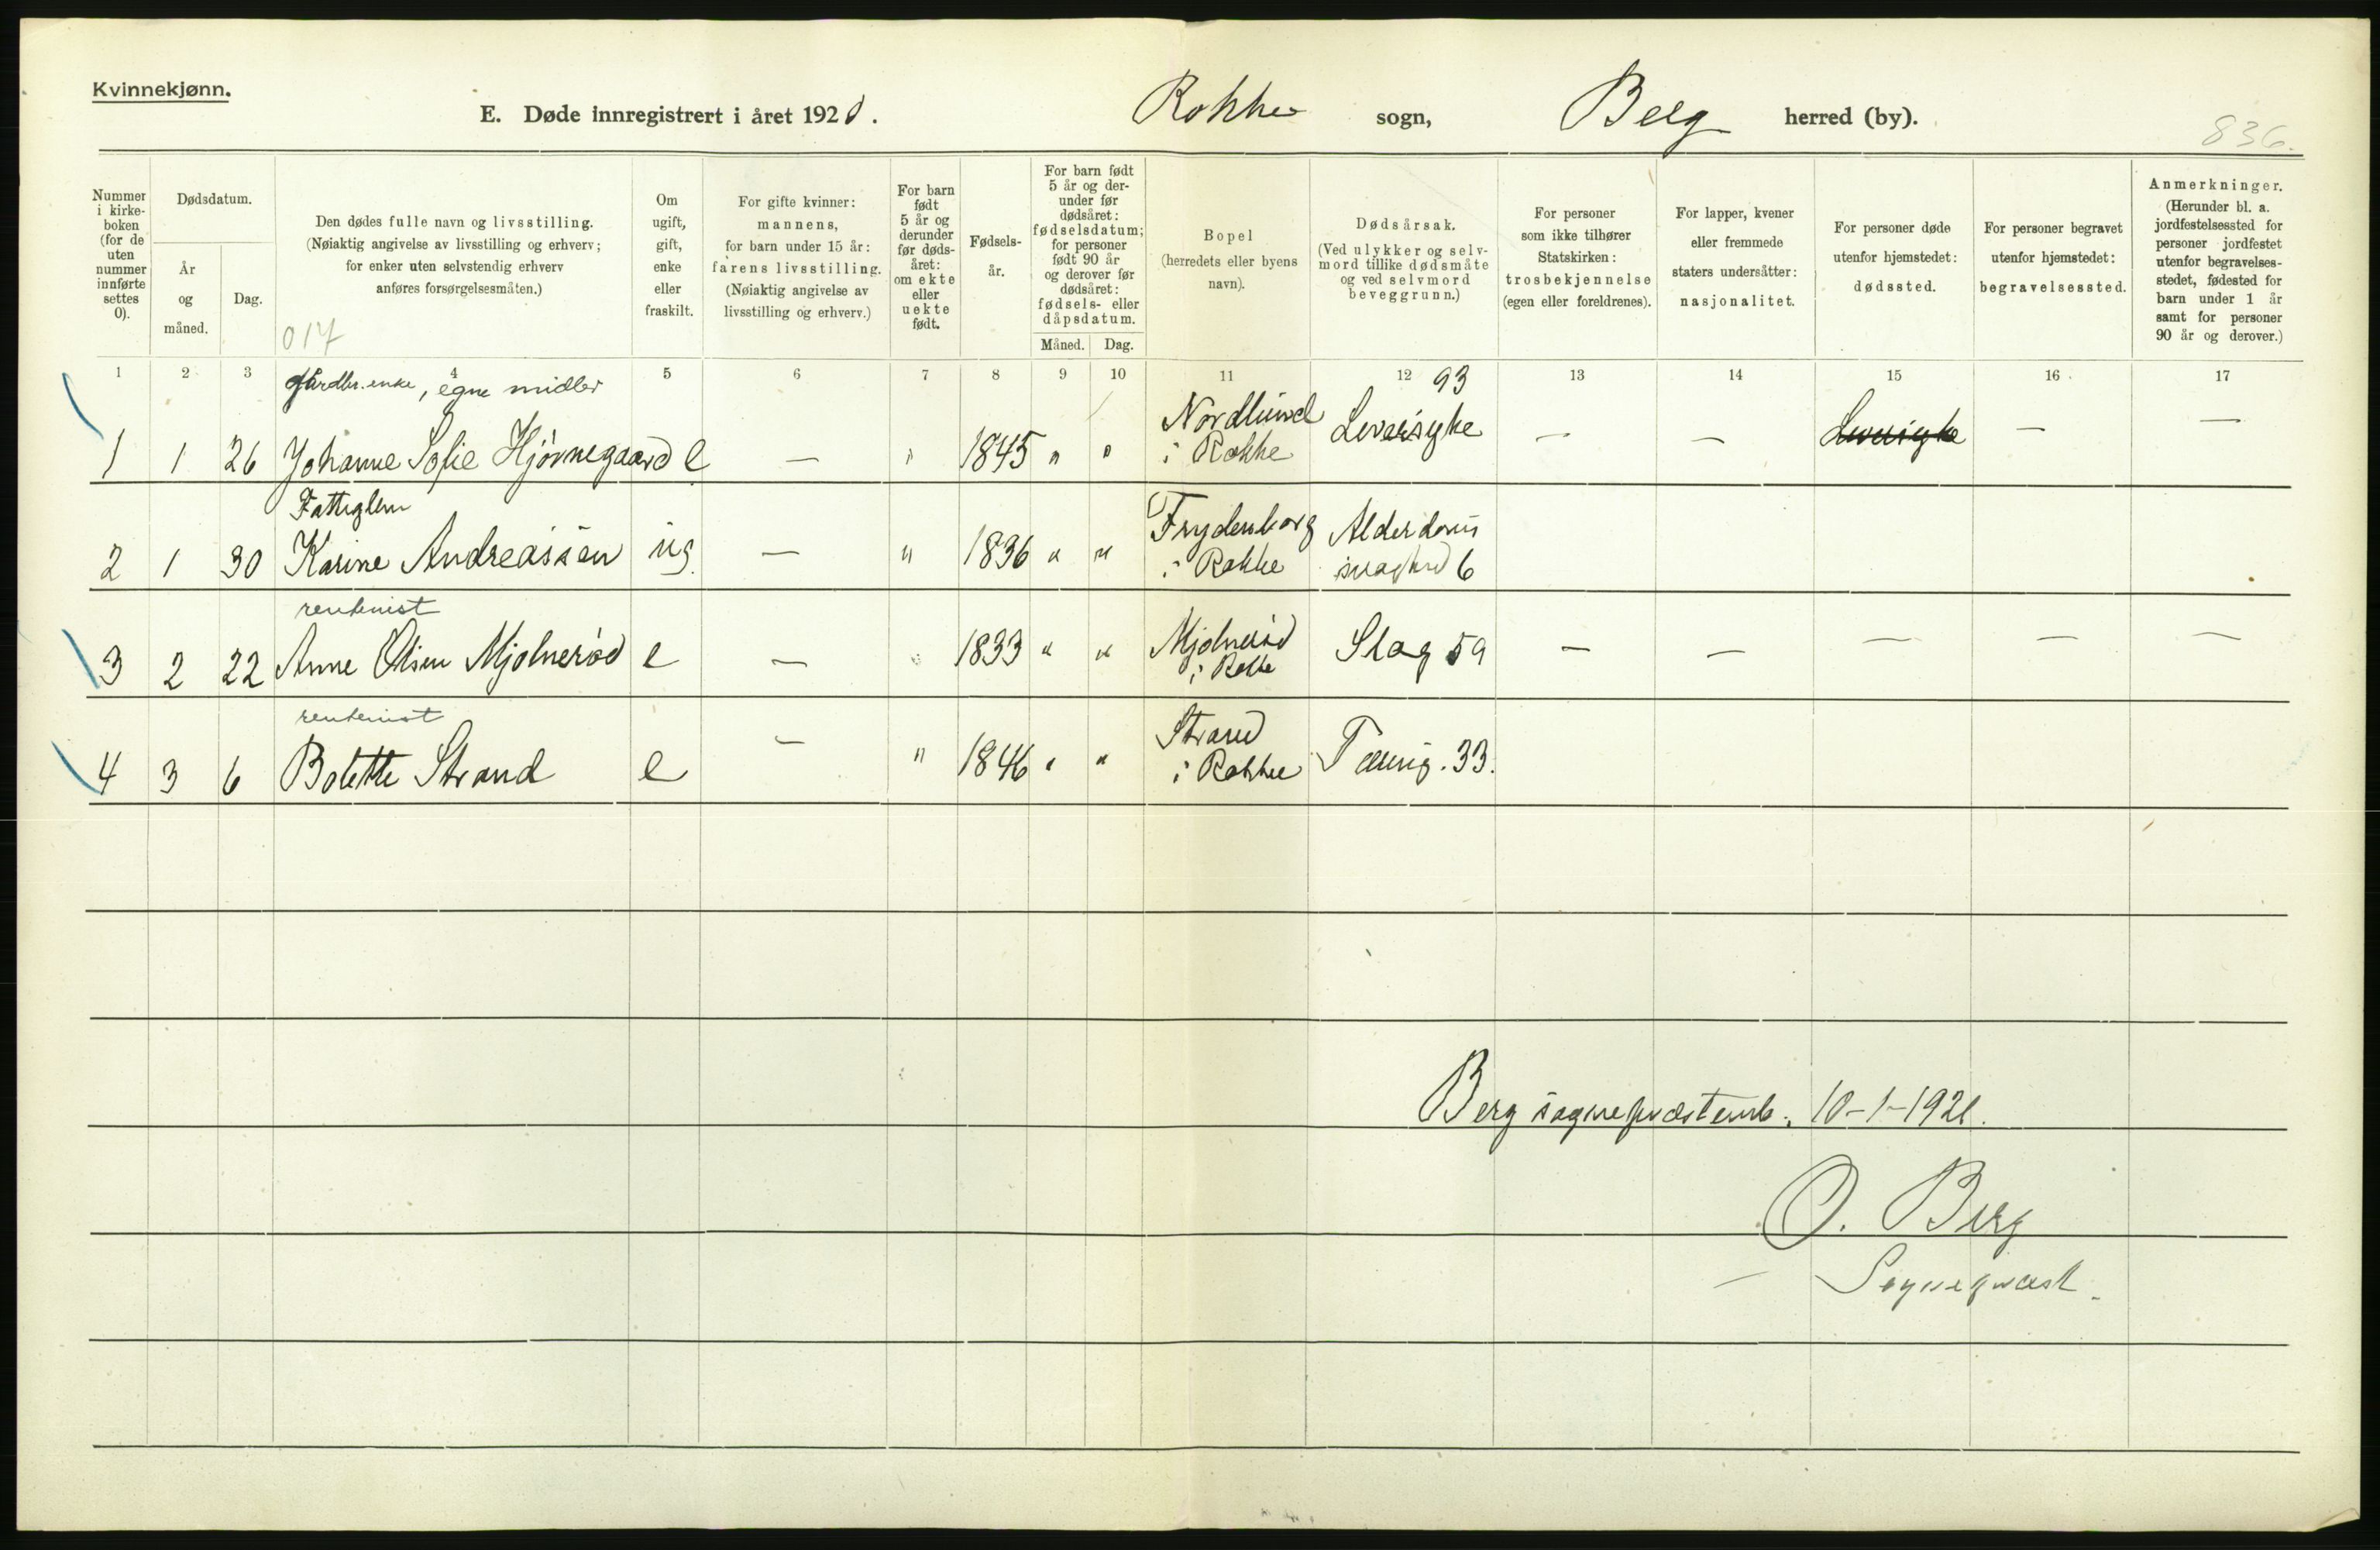 Kvinnekjønn.
E. Døde innregistrert i året 1920. Rokke sogn, Berg herred (by).
836.
Nummer i kirke- boken (for de uten nummer innførte settes 0).
Dødsdatum.
År og måned.
Dag.
Den dødes fulle navn og livsstilling.
(Nøiaktig angivelse av livsstilling og erhverv;
for enker uten selvstendig erhverv
anføres forsørgelsesmåten.)
017
Om ugift, gift, enke eller fraskilt.
For gifte kvinner:
mannens,
for barn under 15 år:
farens livsstilling.
(Nøiaktig angivelse av
livsstilling og erhverv.)
For barn født 5 år og derunder før døds- året: om ekte eller uekte født.
Fødsels- år.
For barn født 5 år og der- under før dødsåret: fødselsdatum; for personer født 90 år og derover før dødsåret: fødsels- eller dåpsdatum.
Måned. Dag.
Bopel
(herredets eller byens
navn).
Dødsårsak.
(Ved ulykker og selv-
mord tillike dødsmåte
og ved selvmord
beveggrunn.)
For personer
som ikke tilhører
Statskirken:
trosbekjennelse
(egen eller foreldrenes).
For lapper, kvener
eller fremmede
staters undersåtter:
nasjonalitet.
For personer døde
utenfor hjemstedet:
dødssted.
For personer begravet
utenfor hjemstedet:
begravelsessted.
Anmerkninger.
(Herunder bl. a.
jordfestelsessted for
personer jordfestet
utenfor begravelses-
stedet, fødested for
barn under 1 år
samt for personer
90 år og derover.)
1 2 3 4 5 6 7 8 9 10 11 12 13 14 15 16 17
gårdbr.enke, egne midler 93
1 1 26 Johanne Sofie Hjørnegaard e — " 1845 " " Nordlund i Rokke Leversyke — — Leversyke — —
Fattiglem
2 1 30 Karine Andreassen ug. — " 1836 " " Frydenborg i Rokke Alderdoms svaghed 6
rentenist
3 2 22 Anne Olsen Mjølnerød e — " 1833 " " Mjølnerød i Rokke Slag 59 — — — — —
rentenist
4 3 6 Bolette Strand e — " 1846 " " Strand i Rokke Tæring. 33.
Berg sogneprestemb. 10-1-1921.
O. Berg
Sogneprest.